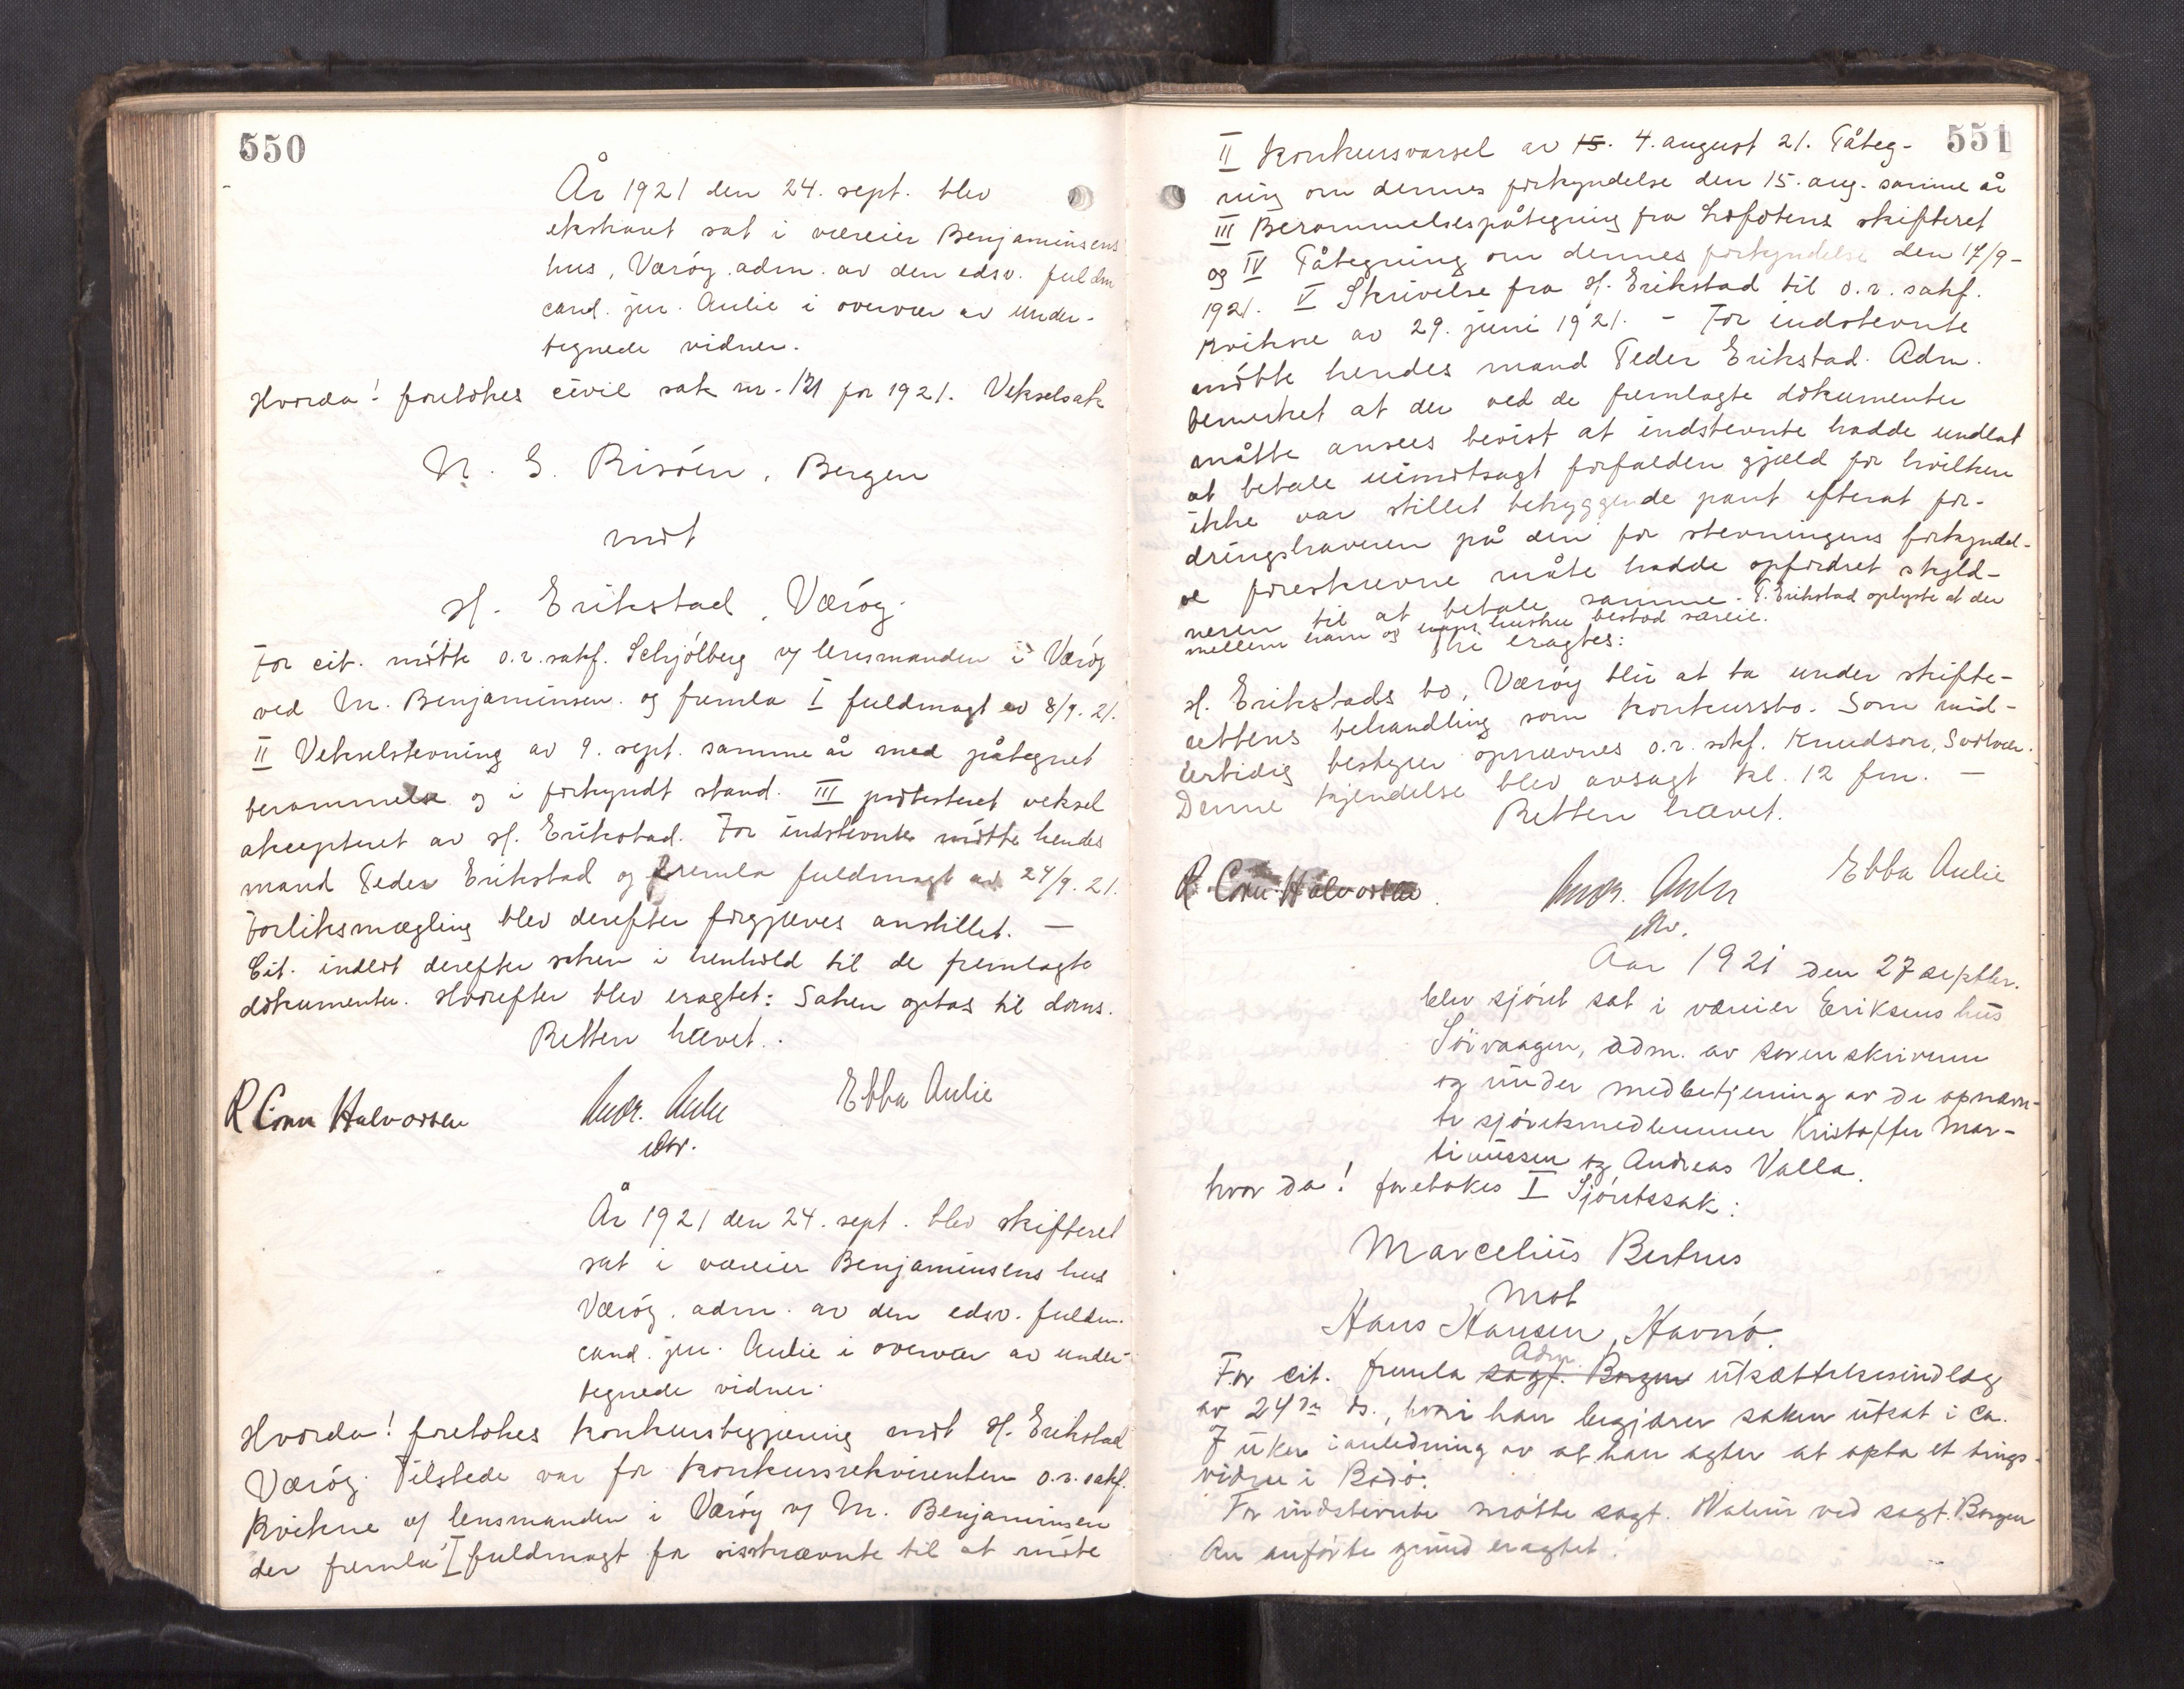 550
År 1921 den 24. sept. blev
ekstraret sat i væreier Benjaminsens
hus, Værøy. adm. av den edsv. fuldm
cand. jur. Aulie i overvær av under-
tegnede vidner.
Hvorda! foretokes civil sak nr. 121 for 1921. Vekselsak
N. G. Risøen, Bergen
mot
H. Erikstad, Værøy.
For cit. møtte o.r.sakf. Schjølberg v/ lensmanden i Værøy
ved M. Benjaminsen. og fremla I fuldmagt av 8/9. 21.
II Vekselstevning av 9. sept. samme år med påtegnet
berammelse og i forkyndt stand. III protesteret veksel
akcepteret av H. Erikstad. For indstevnte møtte hendes
mand Peder Erikstad og fremla fuldmagt av 24/9. 21.
Forliksmægling blev derefter forgjæves anstillet. —
Cit. indlot derefter saken i henhold til de fremlagte
dokumenter. Hvorefter blev eragtet: Saken optas til doms.
Retten hævet.
R Conr Halvorsen
Andr. Aulie
edsv.
Ebba Aulie
År 1921 den 24. sept. blev skifteret
sat i væreier Benjaminsens hus
Værøy. adm. av den edsv. fuldm.
cand. jur. Aulie i overvær av under-
tegnede vidner.
Hvorda! foretokes konkursbegjæring mot H. Erikstad
Værøy. Tilstede var for konkursrekvirenten o.r.sakf.
Kvikne v/ lensmanden i Værøy v/ M. Benjaminsen
der fremla I fuldmagt for sisstnævnte til at møte
551
II Konkursvarsel av 15. 4. august 21. Påteg-
ning om dennes forkyndelse den 15. aug. samme år
III Berammelsespåtegning fra Lofotens skifteret
og IV Påtegning om dennes forkyndelse den 17/9-
1921. V Skrivelse fra H. Erikstad til o.r. sakf.
Kvikne av 29. juni 1921. - For indstevnte
møtte hendes mand Peder Erikstad. Adm.
bemerket at der ved de fremlagte dokumenter
måtte ansees bevist at indstevnte hadde undlat
at betale uimotsagt forfalden gjæld for hvilken
ikke var stillet betryggende pant efterat for-
dringshaveren på den for stevningens forkyndel-
se foreskrevne måte hadde opfordret skyld-
neren til at betale samme. P. Erikstad oplyste at der
mellem ham og hans hustru bestod særeie.
Thi eragtes:
H. Erikstads bo, Værøy blir at ta under skifte-
rettens behandling som konkursbo. Som mid-
lertidig bestyrer opnævnes o.r. sakf. Knudson, Svolvær.
Denne kjendelse blev avsagt kl. 12 fm. —
Retten hævet.
R Conr. Halvorsen.
Andr. Aulie
edsv.
Ebba Aulie
Aar 1921 den 27 septbr.
blev sjøret sat i væreier Eriksens hus
Sörvaagen, adm. av sorenskriveren
og under medbetjening av de opnævn-
te sjøretsmedlemmer Kristoffer Mar-
tinussen og Andreas Valla.
hvor da! foretokes I Sjøretssak:
Marcelius Bertnes
mot
Hans Hansen, Havnø.
Adm.
For cit. fremla sagf. Borgen utsættelsesindlæg
av 24de ds., hvori han begjærer saken utsat i ca.
7 uker i anledning av at han agter at opta et tings-
vidne i Bodø.
For indstevnte møtte sagf. Walnum ved sagf. Borgen
Av anførte grund eragtet: